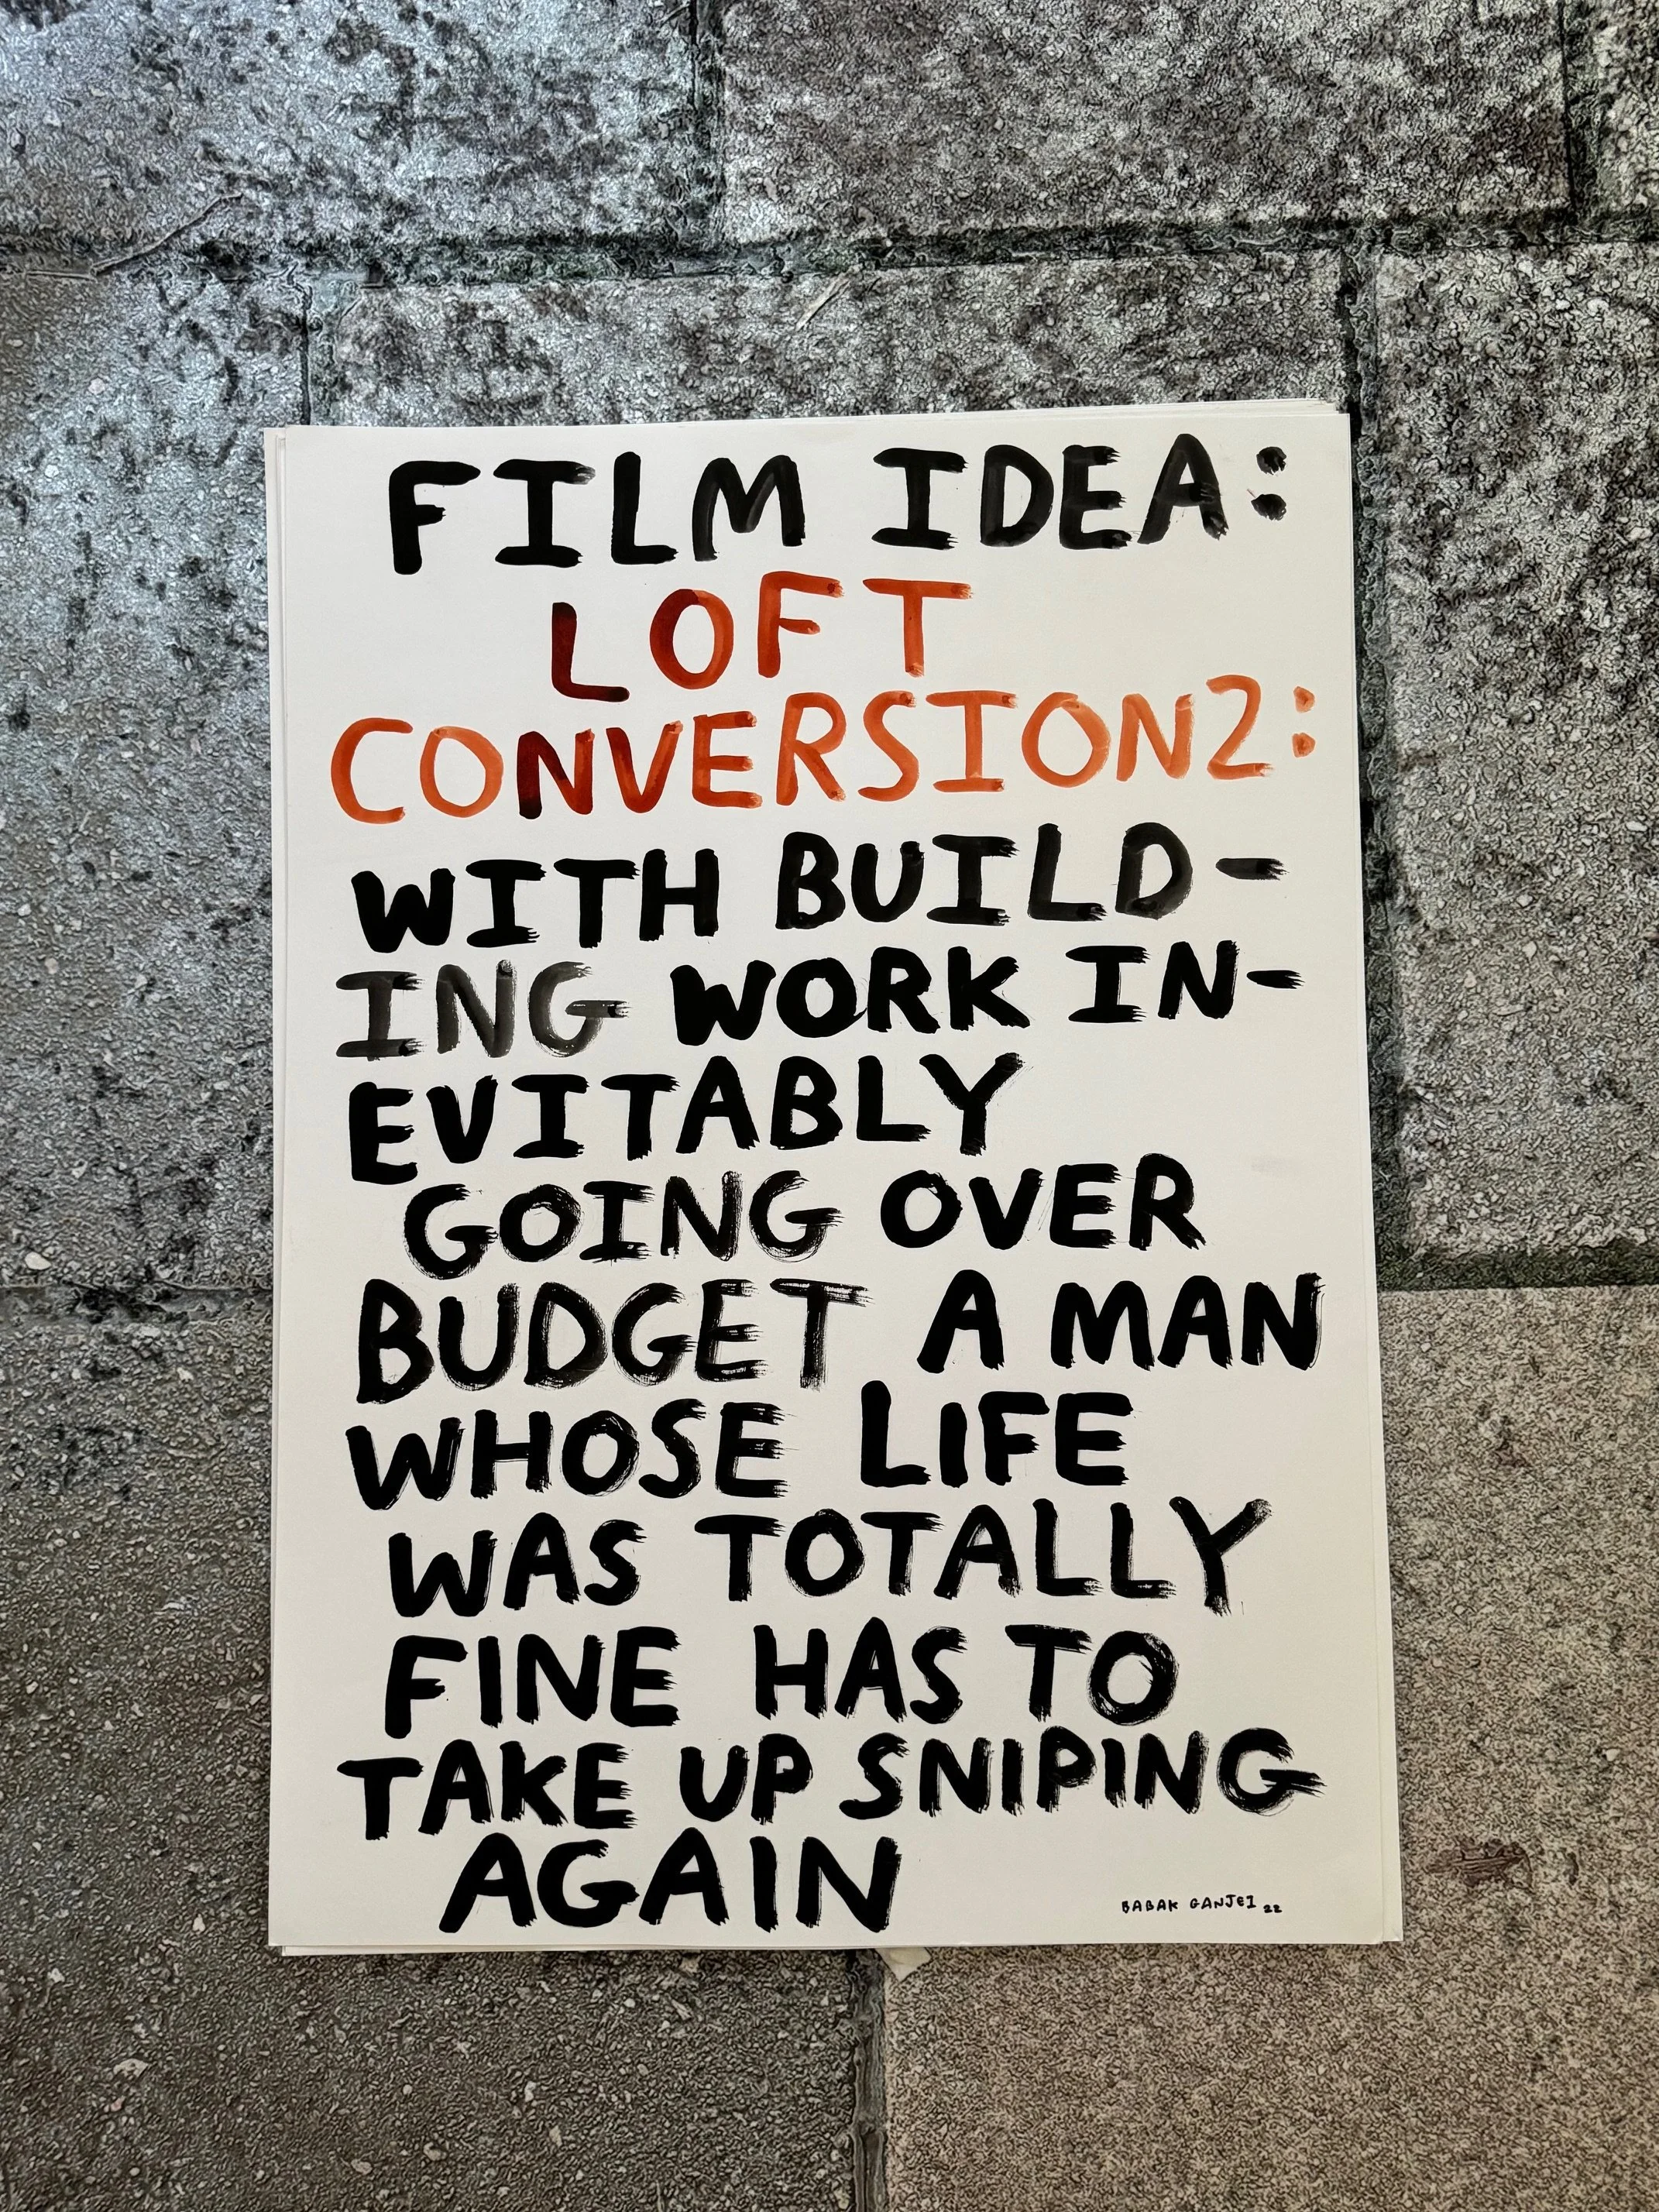 FILM IDEA:
LOFT
CONVERSION2:
WITH BUILD-
ING WORK IN-
EVITABLY
GOING OVER
BUDGET A MAN
WHOSE LIFE
WAS TOTALLY
FINE HAS TO
TAKE UP SNIPING
AGAIN
BABAK GANJEI 22